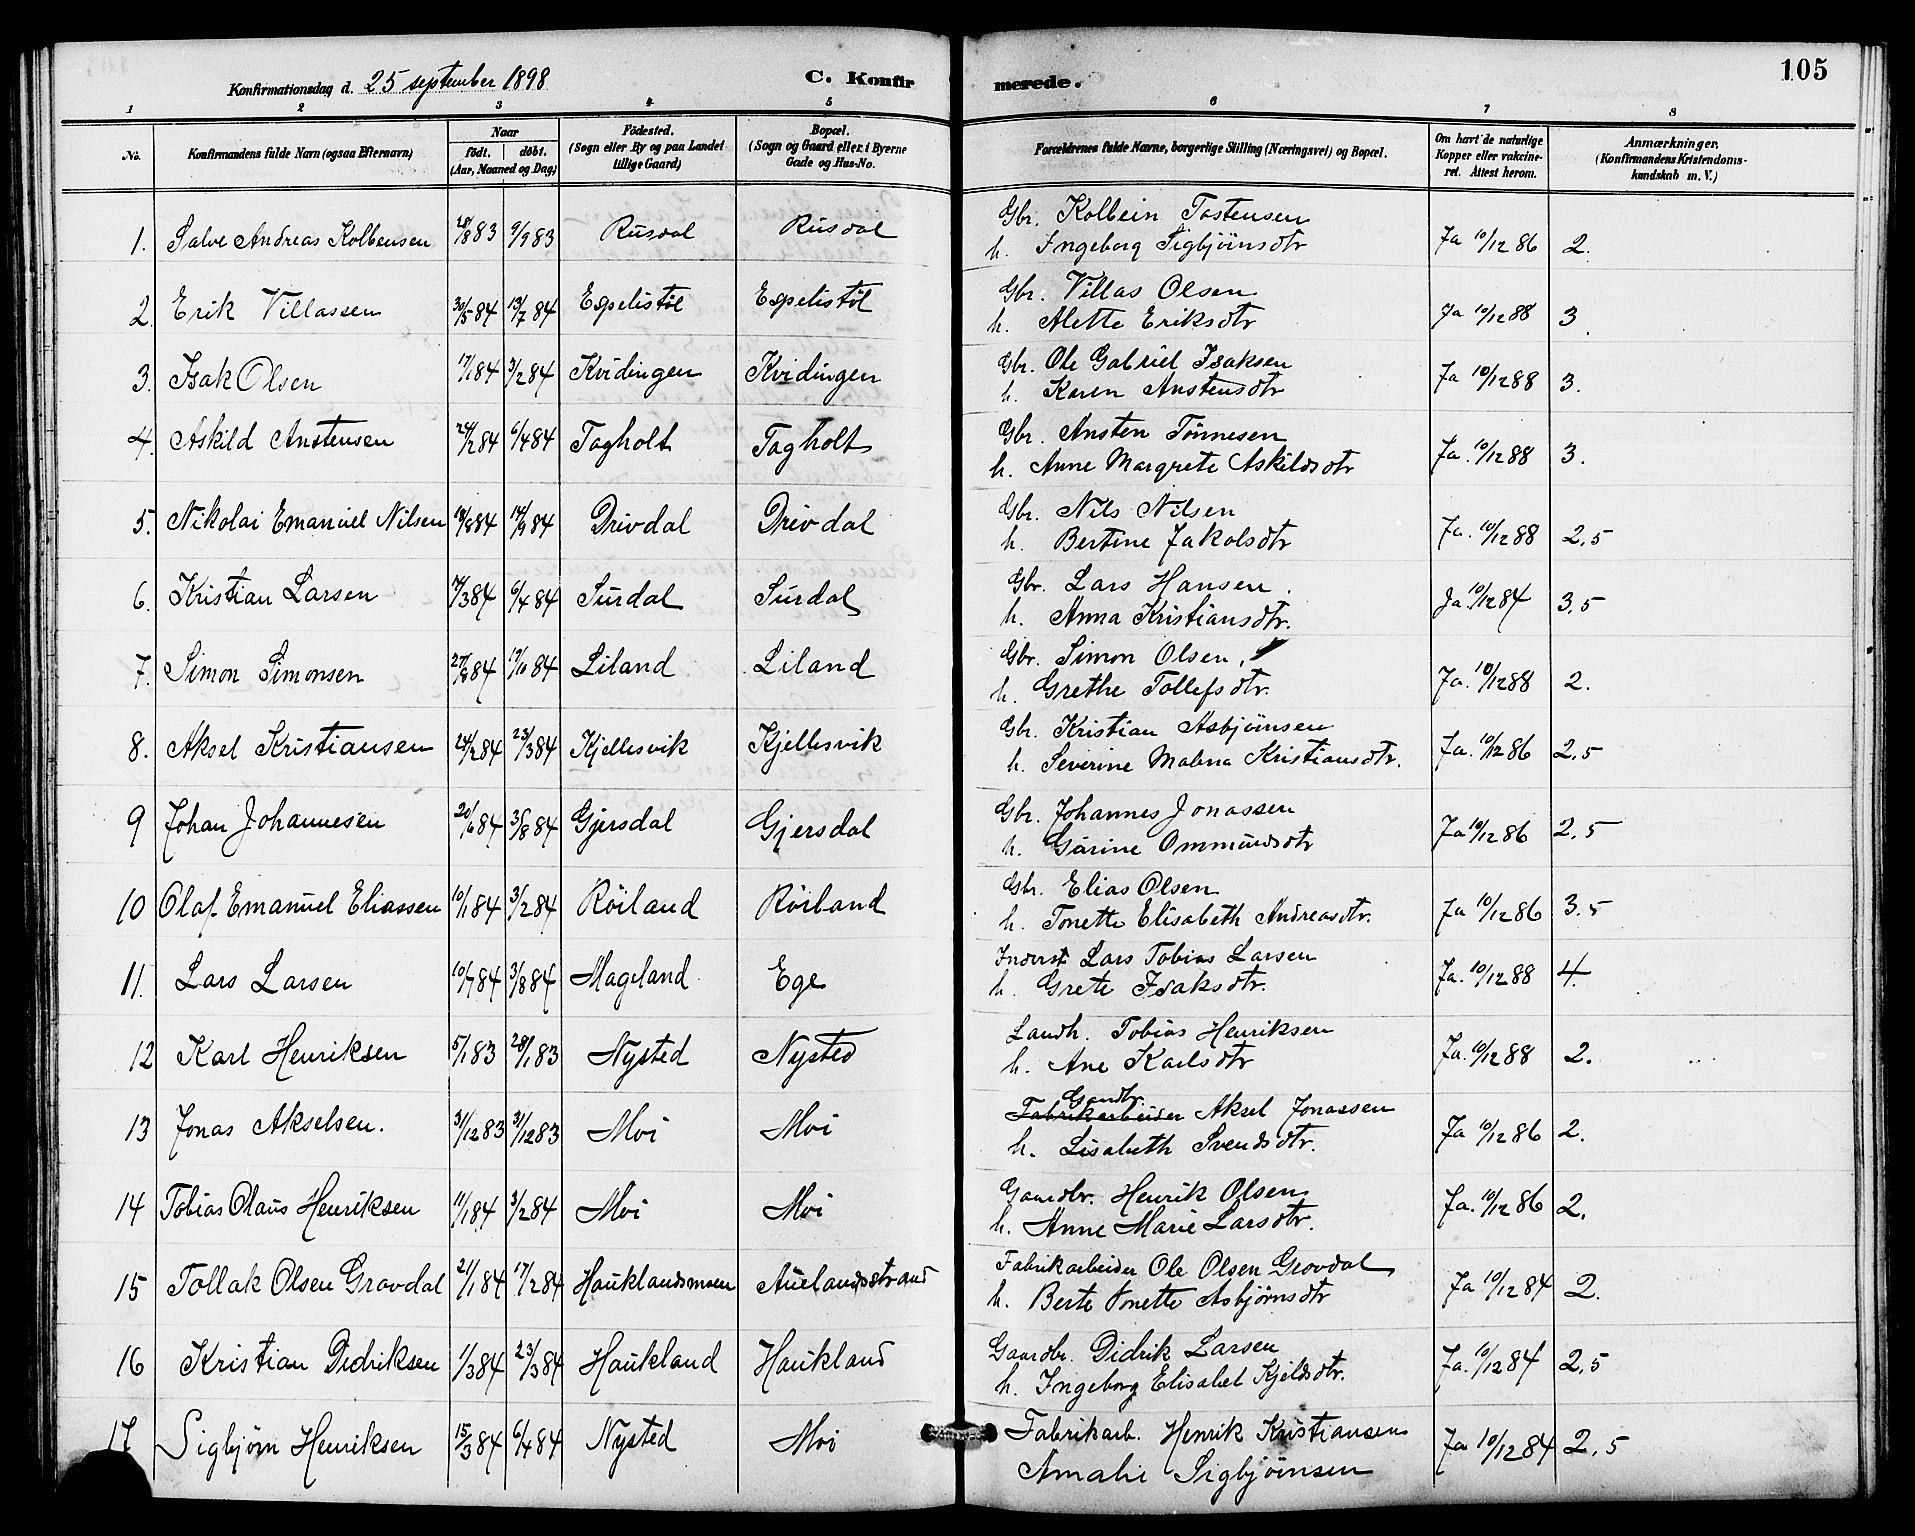 105
Konfirmationsdag d. 25 september 1898
C. Konfirmerede.
1 2 3 4 5 6 7 8
No. Konfirmandens fulde Navn (ogsaa Efternavn) Naar födt. döbt. (Aar, Maaned og Dag) Födested. (Sogn eller By og paa Landet tillige Gaard) Bopæl. (Sogn og Gaard eller i Byerne Gade og Hus-No. Forældrenes fulde Navne, borgerlige Stilling (Næringsvei) og Bopæl. Om havt de naturlige Kopper eller vakcineret. Attest herom. Anmærkninger. (Konfirmandens Kristendomskundskab m. V.)
1. Salve Andreas Kolbensen 28/8 83 9/9 83 Rusdal Rusdal Gbr. Kolbein Tostensen Ja 10/12 86 2.
h. Ingeborg Sigbjörnsdtr
2. Erik Villassen 30/5 84 13/7 84 Espelistøl Espelistøl Gbr. Villas Olsen Ja 10/12 88 3
h. Alette Eriksdtr
3. Isak Olsen 17/1 84 3/2 84 Kvidingen Kvidingen Gbr. Ole Gabriel Isaksen Ja 10/12 88 3.
h. Karen Anstensdtr
4. Askild Anstensen 24/2 84 6/4 84 Tagholt Tagholt Gbr. Ansten Tönnesen Ja. 10/12 88 3.
h. Anne Margrete Askildsdtr
5. Nikolai Emanuel Nilsen 18/8 84 14/9 84 Drivdal Drivdal Gbr. Nils Nilsen Ja. 10/12 88 2,5
h. Bertine Jakobsdtr
6. Kristian Larsen 14/3 84 6/4 84 Surdal Surdal Gbr. Lars Hansen. Ja. 10/12 84 3,5
h. Anna Kristiansdtr.
7. Simon Simonsen 27/8 84 19/10 84 Liland Liland Gbr. Simon Olsen, Ja. 10/12 88 2.
h. Grethe Tollefsdtr.
8. Aksel Kristiansen 24/2 84 23/3 84 Kjellesvik Kjellesvik Gbr. Kristian Asbjörnsen Ja. 10/12 86 2,5
h. Severine Malena Kristiansdtr.
9 Johan Johannesen 20/6 84 3/8 84 Gjersdal Gjersdal Gbr. Johannes Jonassen Ja 10/12 86 2,5
h. Gurine Ommundsdtr
10 Olaf Emanuel Eliassen 10/1 84 3/2 84 Röiland Röiland Gbr. Elias Olsen Ja 10/12 86 3.5
h. Tonette Elisabeth Andreasdtr.
11. Lars Larsen 10/7 84 3/8 84 Mageland Ege Inderst Lars Tobias Larsen Ja. 10/12 88 4.
h. Grete Isaksdtr.
12 Karl Henriksen 5/1 83 28/1 83 Nysted Nysted Landh. Tobias Henriksen Ja. 10/12 88 2.
h. Ane Karlsdtr
13 Jonas Akselsen. 31/12 83 31/12 83 Moi Moi Fabrikarbeider Gaardbr. Aksel Jonassen Ja 10/12 86 2.
h. Lisabeth Svendsdtr.
14 Tobias Olaus Henriksen 11/1 84 3/2 84 Moi Moi Gaardbr. Henrik Olsen Ja. 10/12 86 2.
h. Anne Marie Larsdtr.
15 Tollak Olsen Grovdal 21/1 84 17/2 84 Hauklandsmoen Auelandsstrand Fabrikarbeider Ole Olsen Grovdal Ja 10/12 84 2.
h. Berte Tonette Asbjørnsdtr
16 Kristian Didriksen 1/3 84 23/3 84 Haukland Haukland Gaardbr. Didrik Larsen Ja. 10/12 84 2,5
h. Ingeborg Elisabet Kjeldsdtr.
17 Sigbjørn Henriksen 15/3 84 6/4 84 Nysted Moi Fabrikarb. Henrik Kristiansen Ja 10/12 84 2,5
Amalie Sigbjörnsen